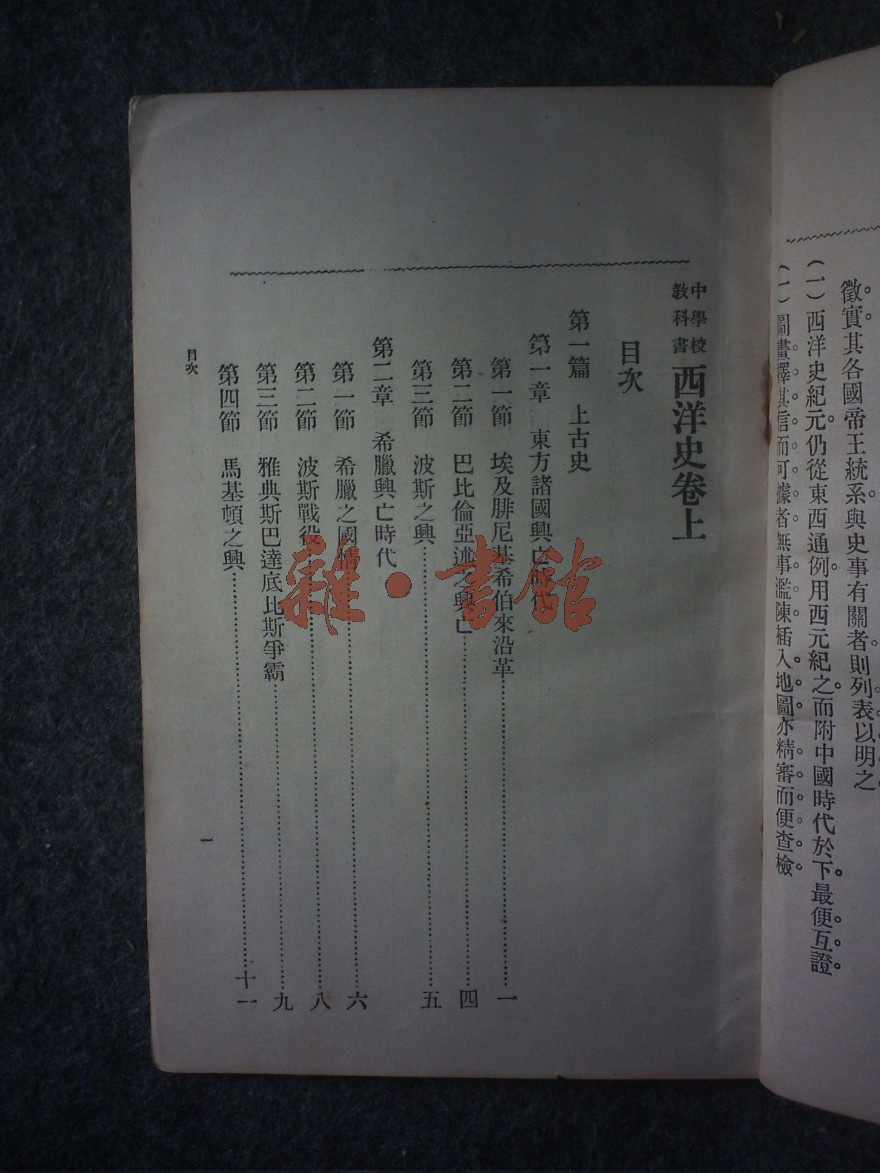 徵實其各國帝王統系與史事有關者則列表以明之
(一)西洋史紀元仍從東西通例用西元紀之而附中國時代於下最便互證
(一)圖畫擇其信而可據者無事濫陳插入地圖亦精審而便查檢
中學校
教科書
西洋史卷上
目次
第一篇 上古史
第一章 東方諸國興亡時代
第一節 埃及腓尼基希伯來沿革 一
第二節 巴比倫亞述之興亡 四
第三節 波斯之興 五
第二章 希臘興亡時代
第一節 希臘之國情 六
第二節 波斯戰役 八
第三節 雅典斯巴達底比斯爭霸 九
第四節 馬基頓之興 十一
目次
一
雜·書館